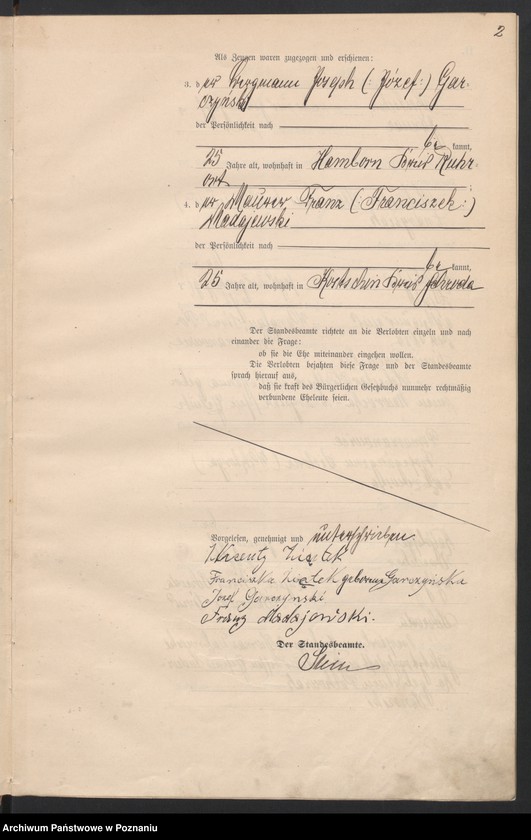 2
Als Zeugen waren zugezogen und erschienen:
3. der Bergmann Joseph (: Józef :) Gar-
czynski
der Persönlichkeit nach
be kannt,
25 Jahre alt, wohnhaft in Hamborn Kreis Ruhr-
ort
4. der Maurer Franz (: Franciszek :)
Madajewski
der Persönlichkeit nach
be kannt,
25 Jahre alt, wohnhaft in Kostschin Kreis Schroda
Der Standesbeamte richtete an die Verlobten einzeln und nach
einander die Frage:
ob sie die Ehe miteinander eingehen wollen.
Die Verlobten bejahten diese Frage und der Standesbeamte
sprach hierauf aus,
daß sie kraft des Bürgerlichen Gesetzbuchs nunmehr rechtmäßig
verbundene Eheleute seien.
Vorgelesen, genehmigt und unterschrieben.
Franciszka geborene Garczyńska
Józef Garczynski
Franz Madajewski.
Der Standesbeamte.
Archiwum Państwowe w Poznaniu